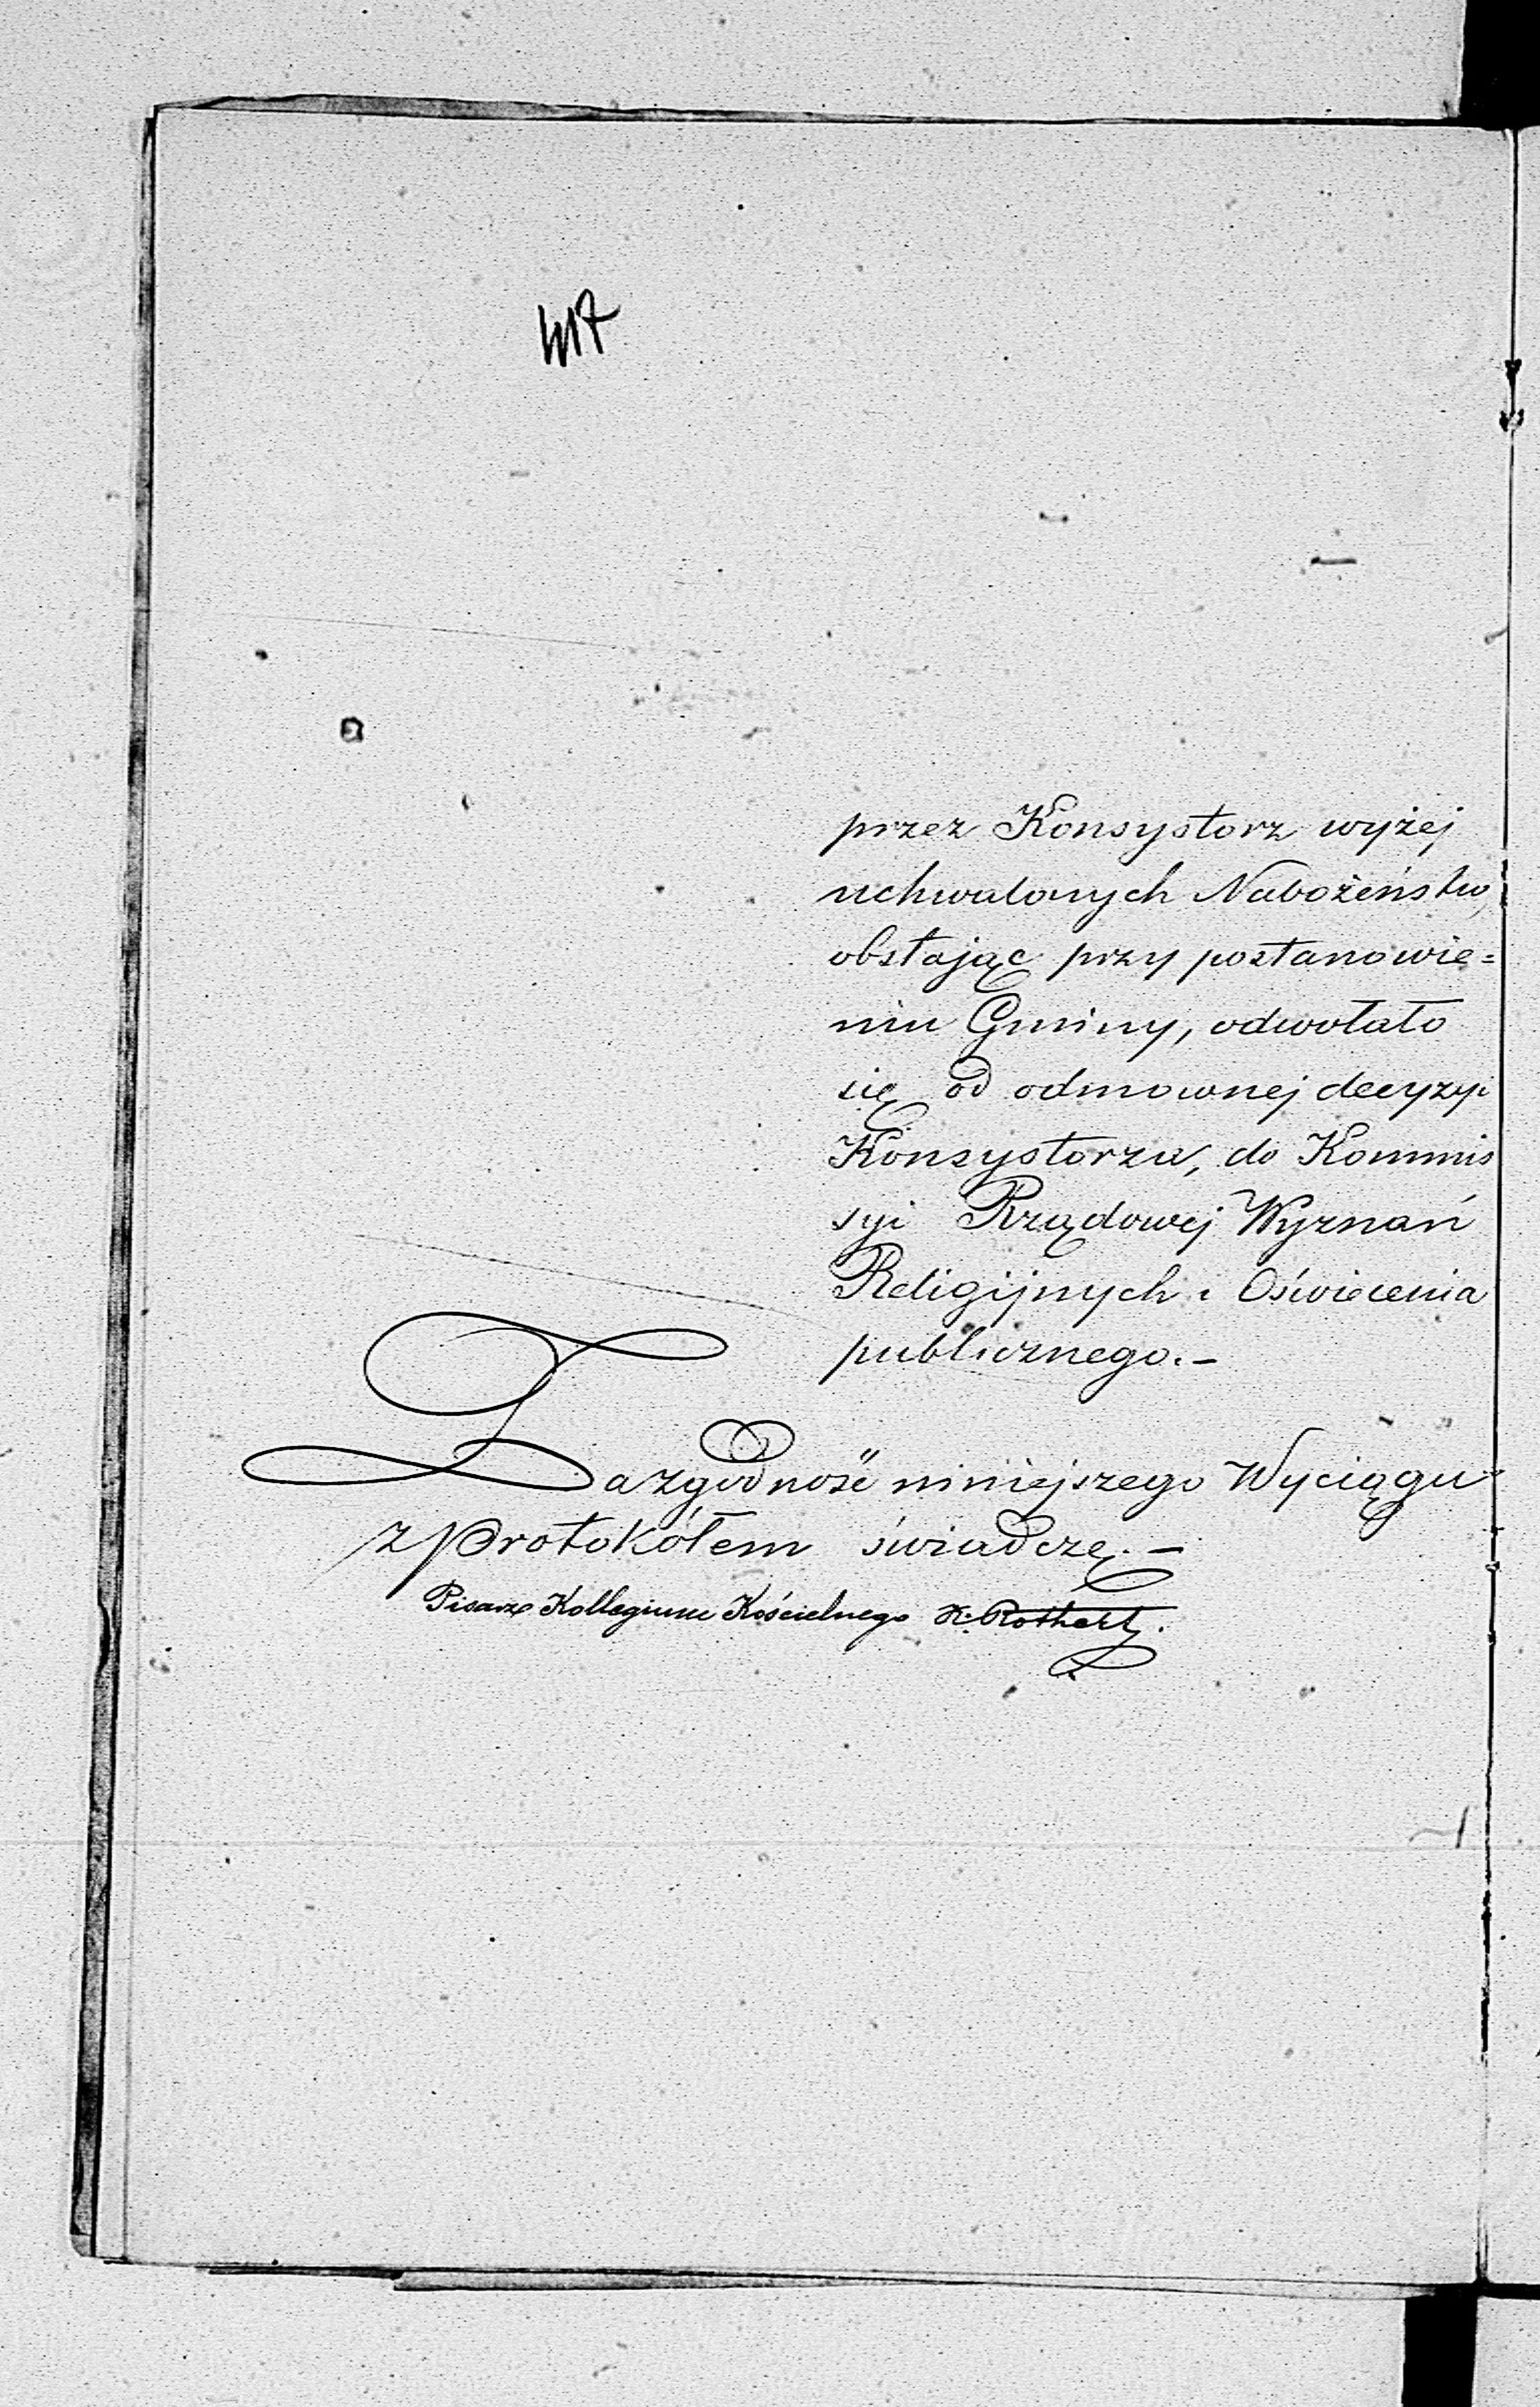 417
przez Konsystorz wyżej
uchwalonych Nabożeństw,
obstając przy postanowie=
niu Gminy, odwołało
się od odmownej decyzyi
Konsystorza, do Kommis
syi Rządowej Wyznań
Religijnych i Oświecenia
publicznego.-
Za zgodność niniejszego Wyciągu
z Protokółem świadczę.-
Pisarz Kollegium Kościelnego K. Rothert.